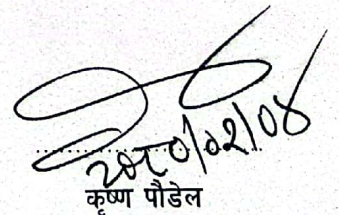 २०८०/०२/०४
कृष्ण पौडेल